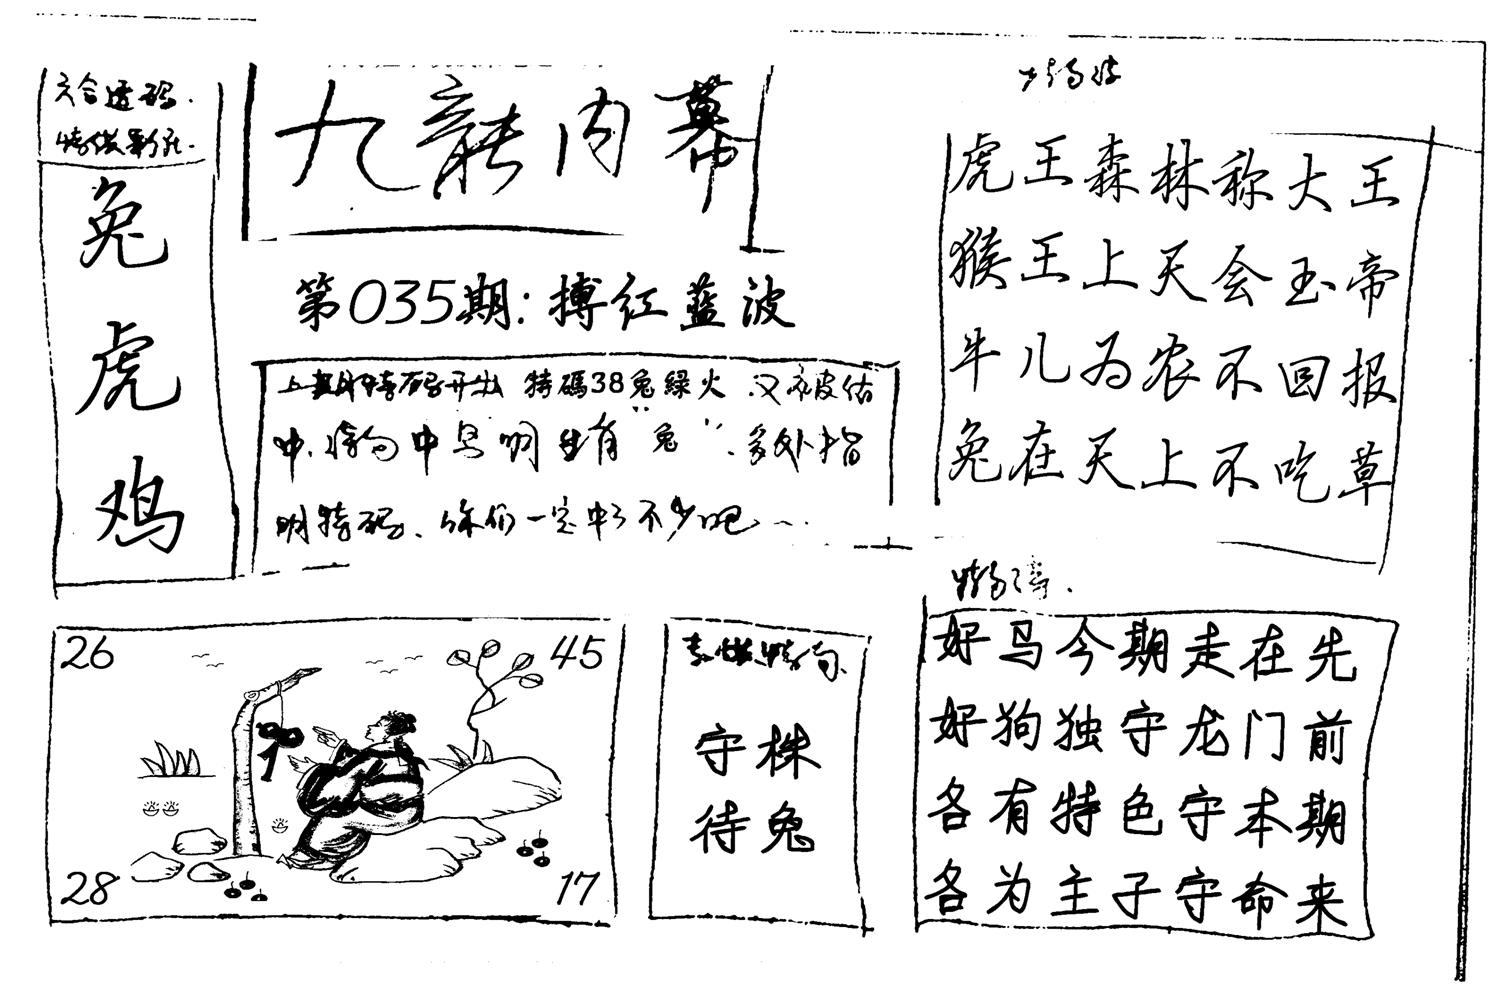 六合透码.
兔
虎
鸡
九龍内幕
第035期:搏红蓝波
上期特码开出 特碼38兔綠火
中 中 明生肖"兔".多处指
明特码、你们一定中了不少吧
虎王森林称大王
猴王上天会玉帝
牛儿为农不回报
兔在天上不吃草
好马今期走在先
好狗独守龙门前
各有特色守本期
各为主子守命来
26
45
28
17
守株
待兔